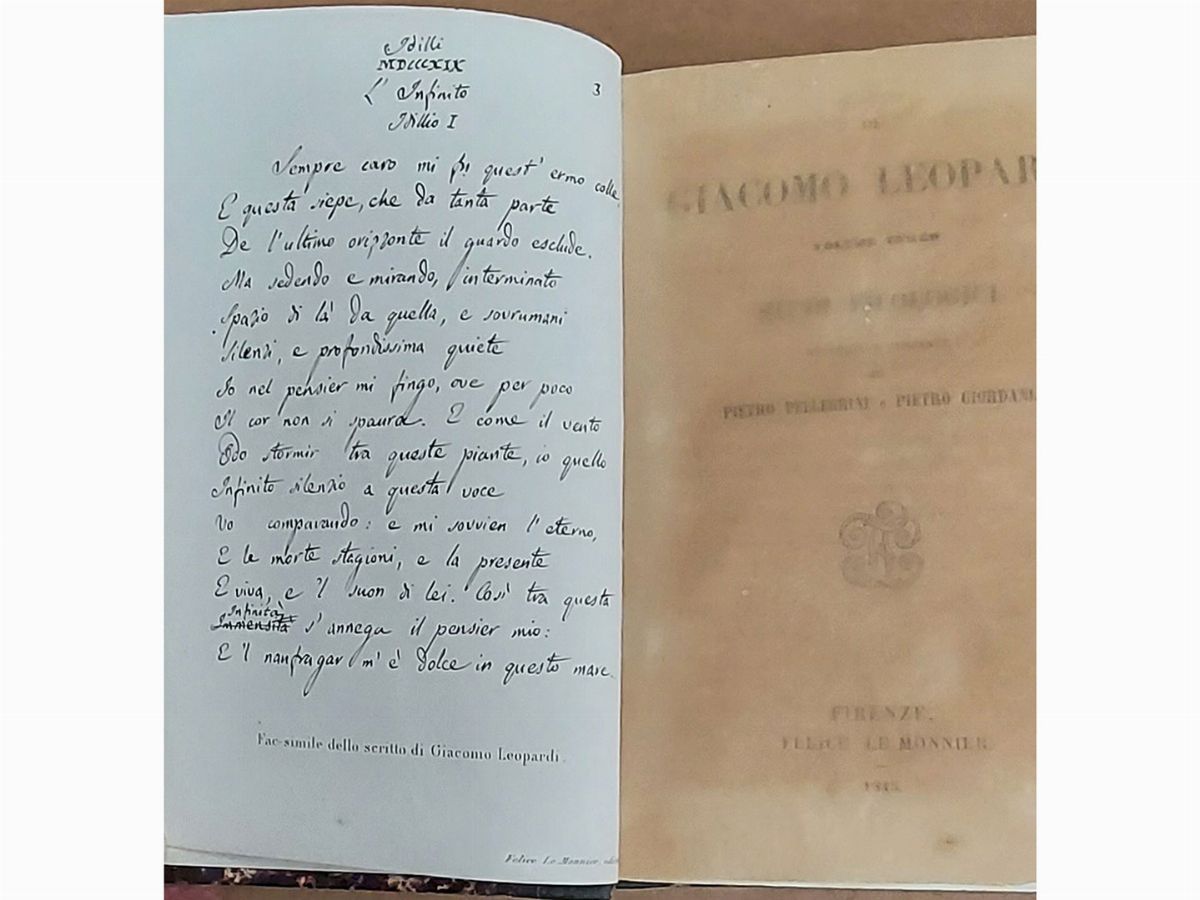 Idilli
MDCCCXIX
L' Infinito
3
Idillio I
Sempre caro mi fu quest' ermo colle,
E questa siepe, che da tanta parte
De l'ultimo orizzonte il guardo esclude.
Ma sedendo e mirando, interminato
Spazio di là da quella, e sovrumani
Silenzi, e profondissima quiete
Io nel pensier mi fingo, ove per poco
Il cor non si spaura. E come il vento
Odo stormir tra queste piante, io quello
Infinito silenzio a questa voce
Vo comparando: e mi sovvien l'eterno,
E le morte stagioni, e la presente
E viva, e 'l suon di lei. Così tra questa
Infinità
Immensità s'annega il pensier mio:
E 'l naufragar m'è dolce in questo mare.
Fac-simile dello scritto di Giacomo Leopardi.
Felice Le Monnier
DI
GIACOMO LEOPAR
VOLUME
PIETRO PELLEGRINI e PIETRO GIORDANI
FIRENZE.
FELICE LE MONNIER.